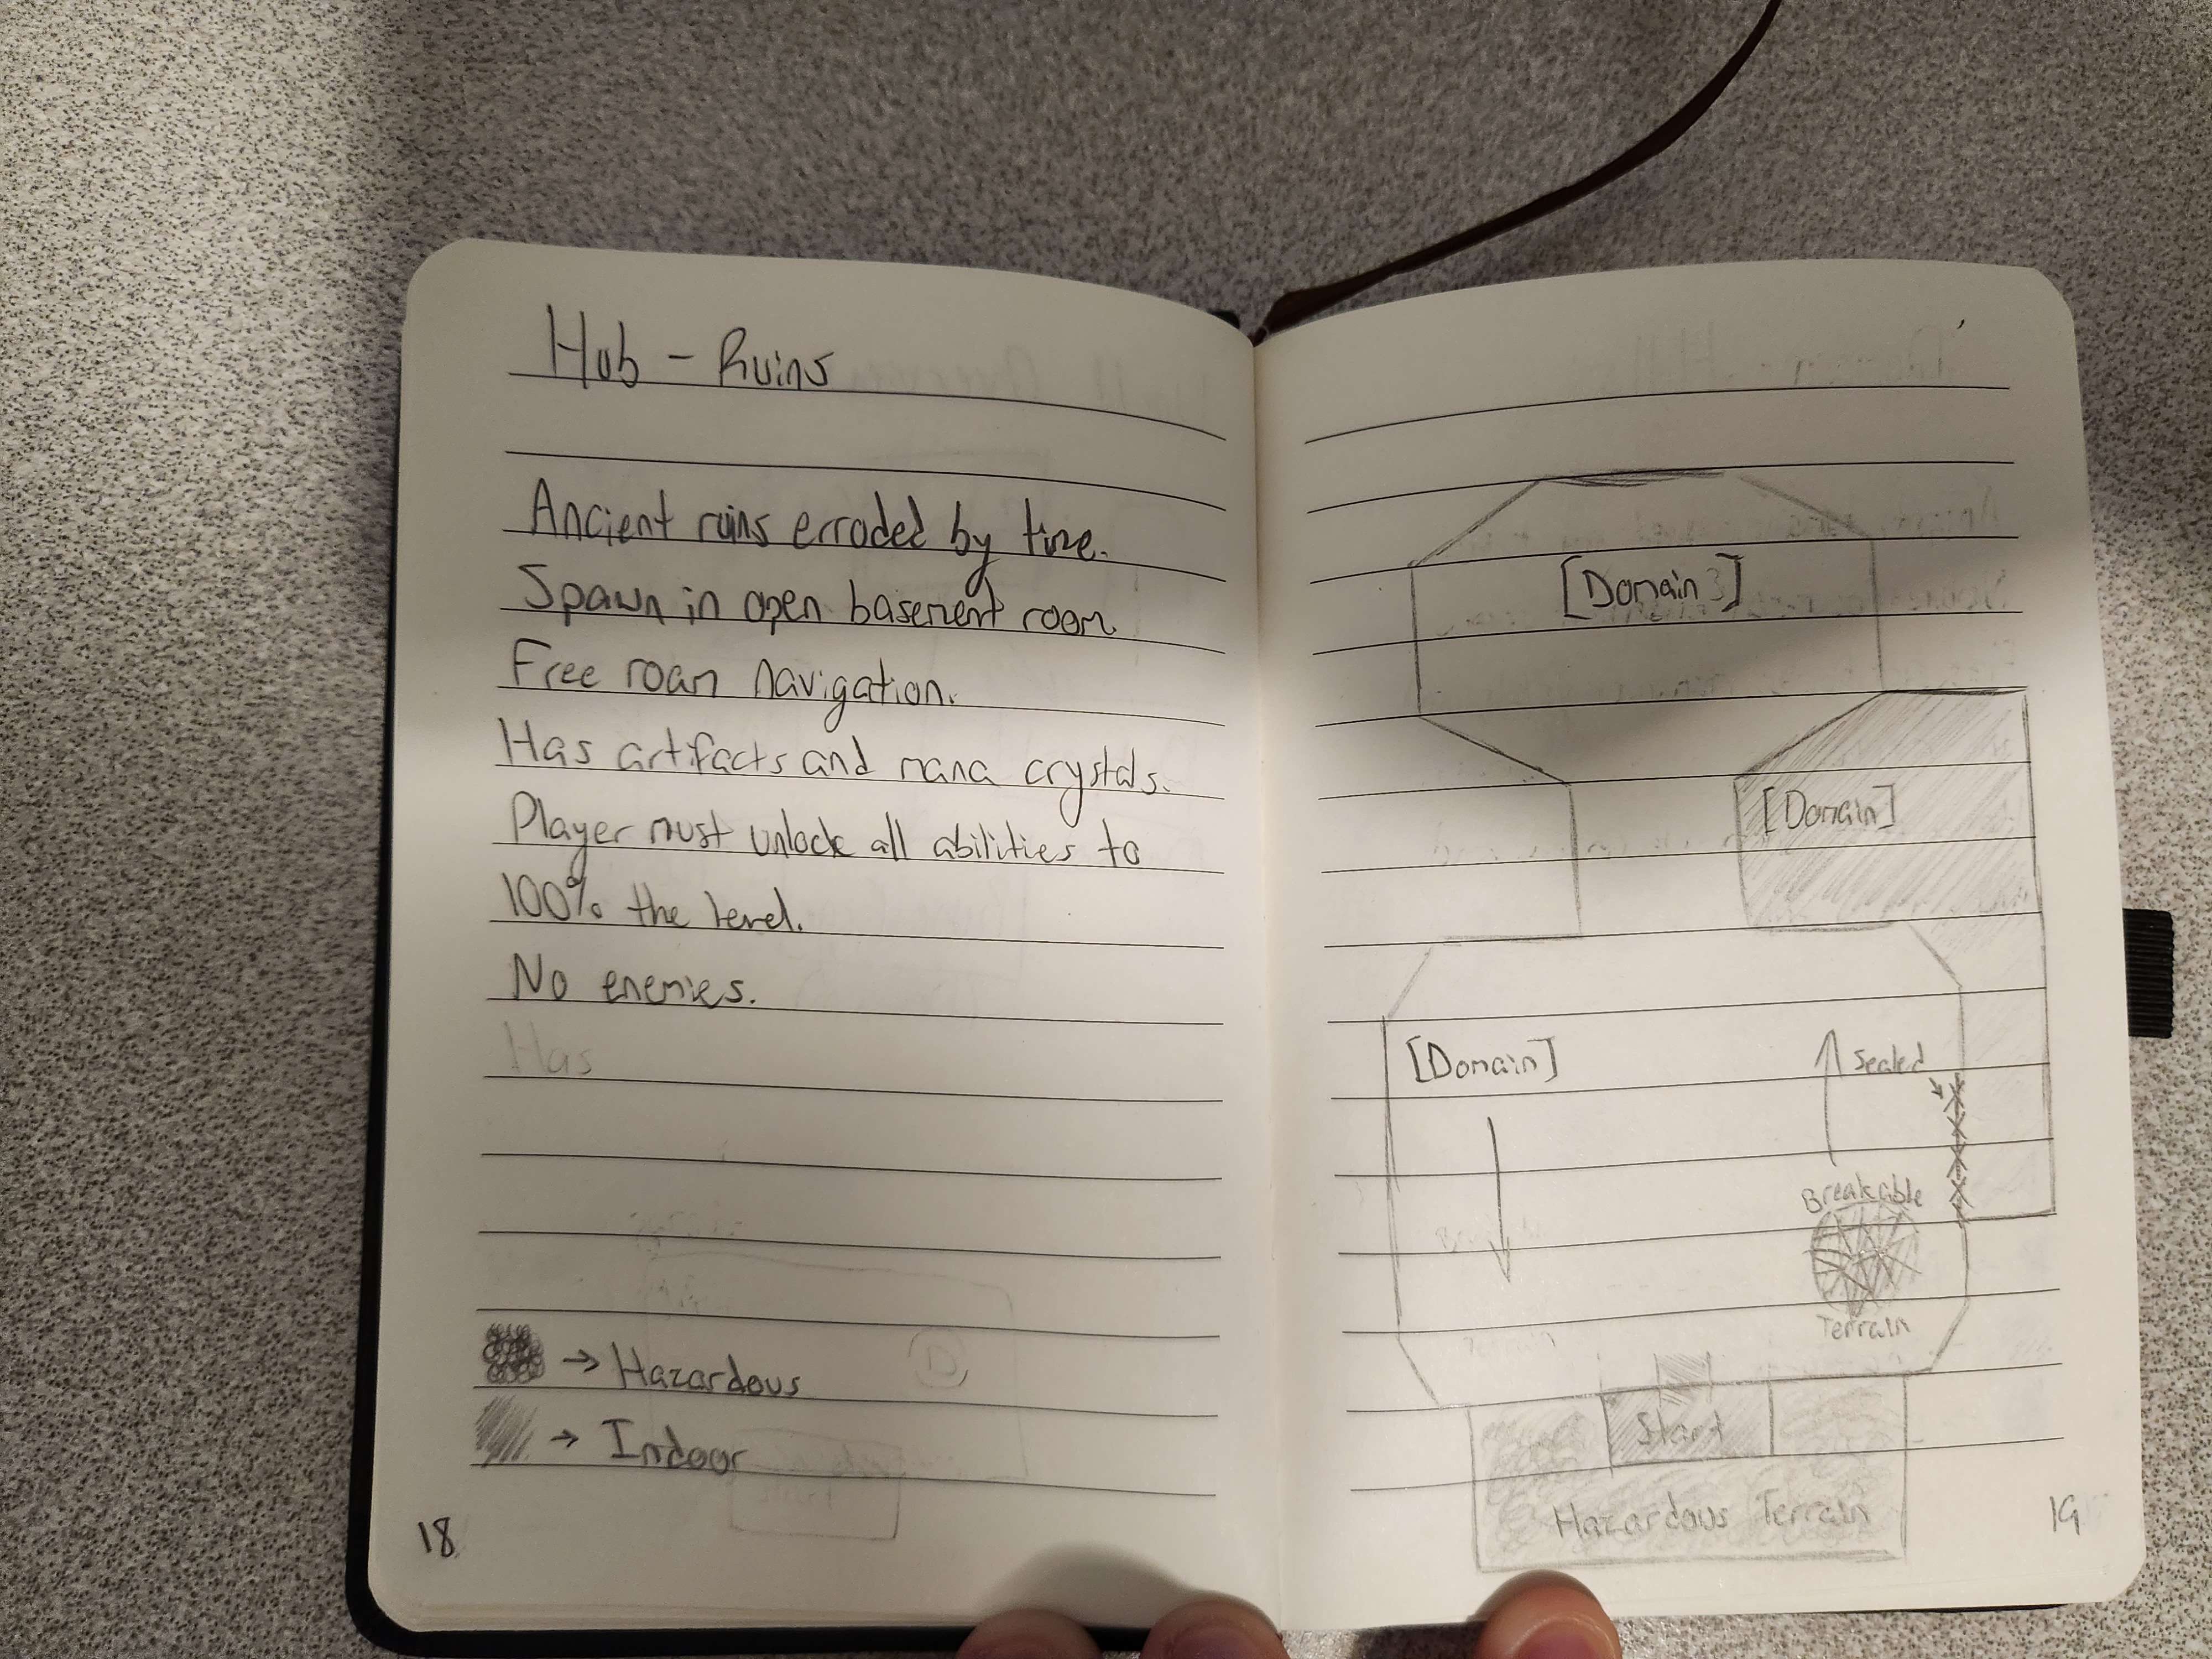 Hub - Ruins
Ancient ruins erroded by time.
Spawn in open basement room.
Free roam navigation.
Has artifacts and mana crystals.
Player must unlock all abilities to
100% the level.
No enemies.
Has
→ Hazardous
→ Indoor
18
[Domain 3]
[Domain]
[Domain]
Sealed
Breakable
Terrain
Start
Hazardous Terrain
19